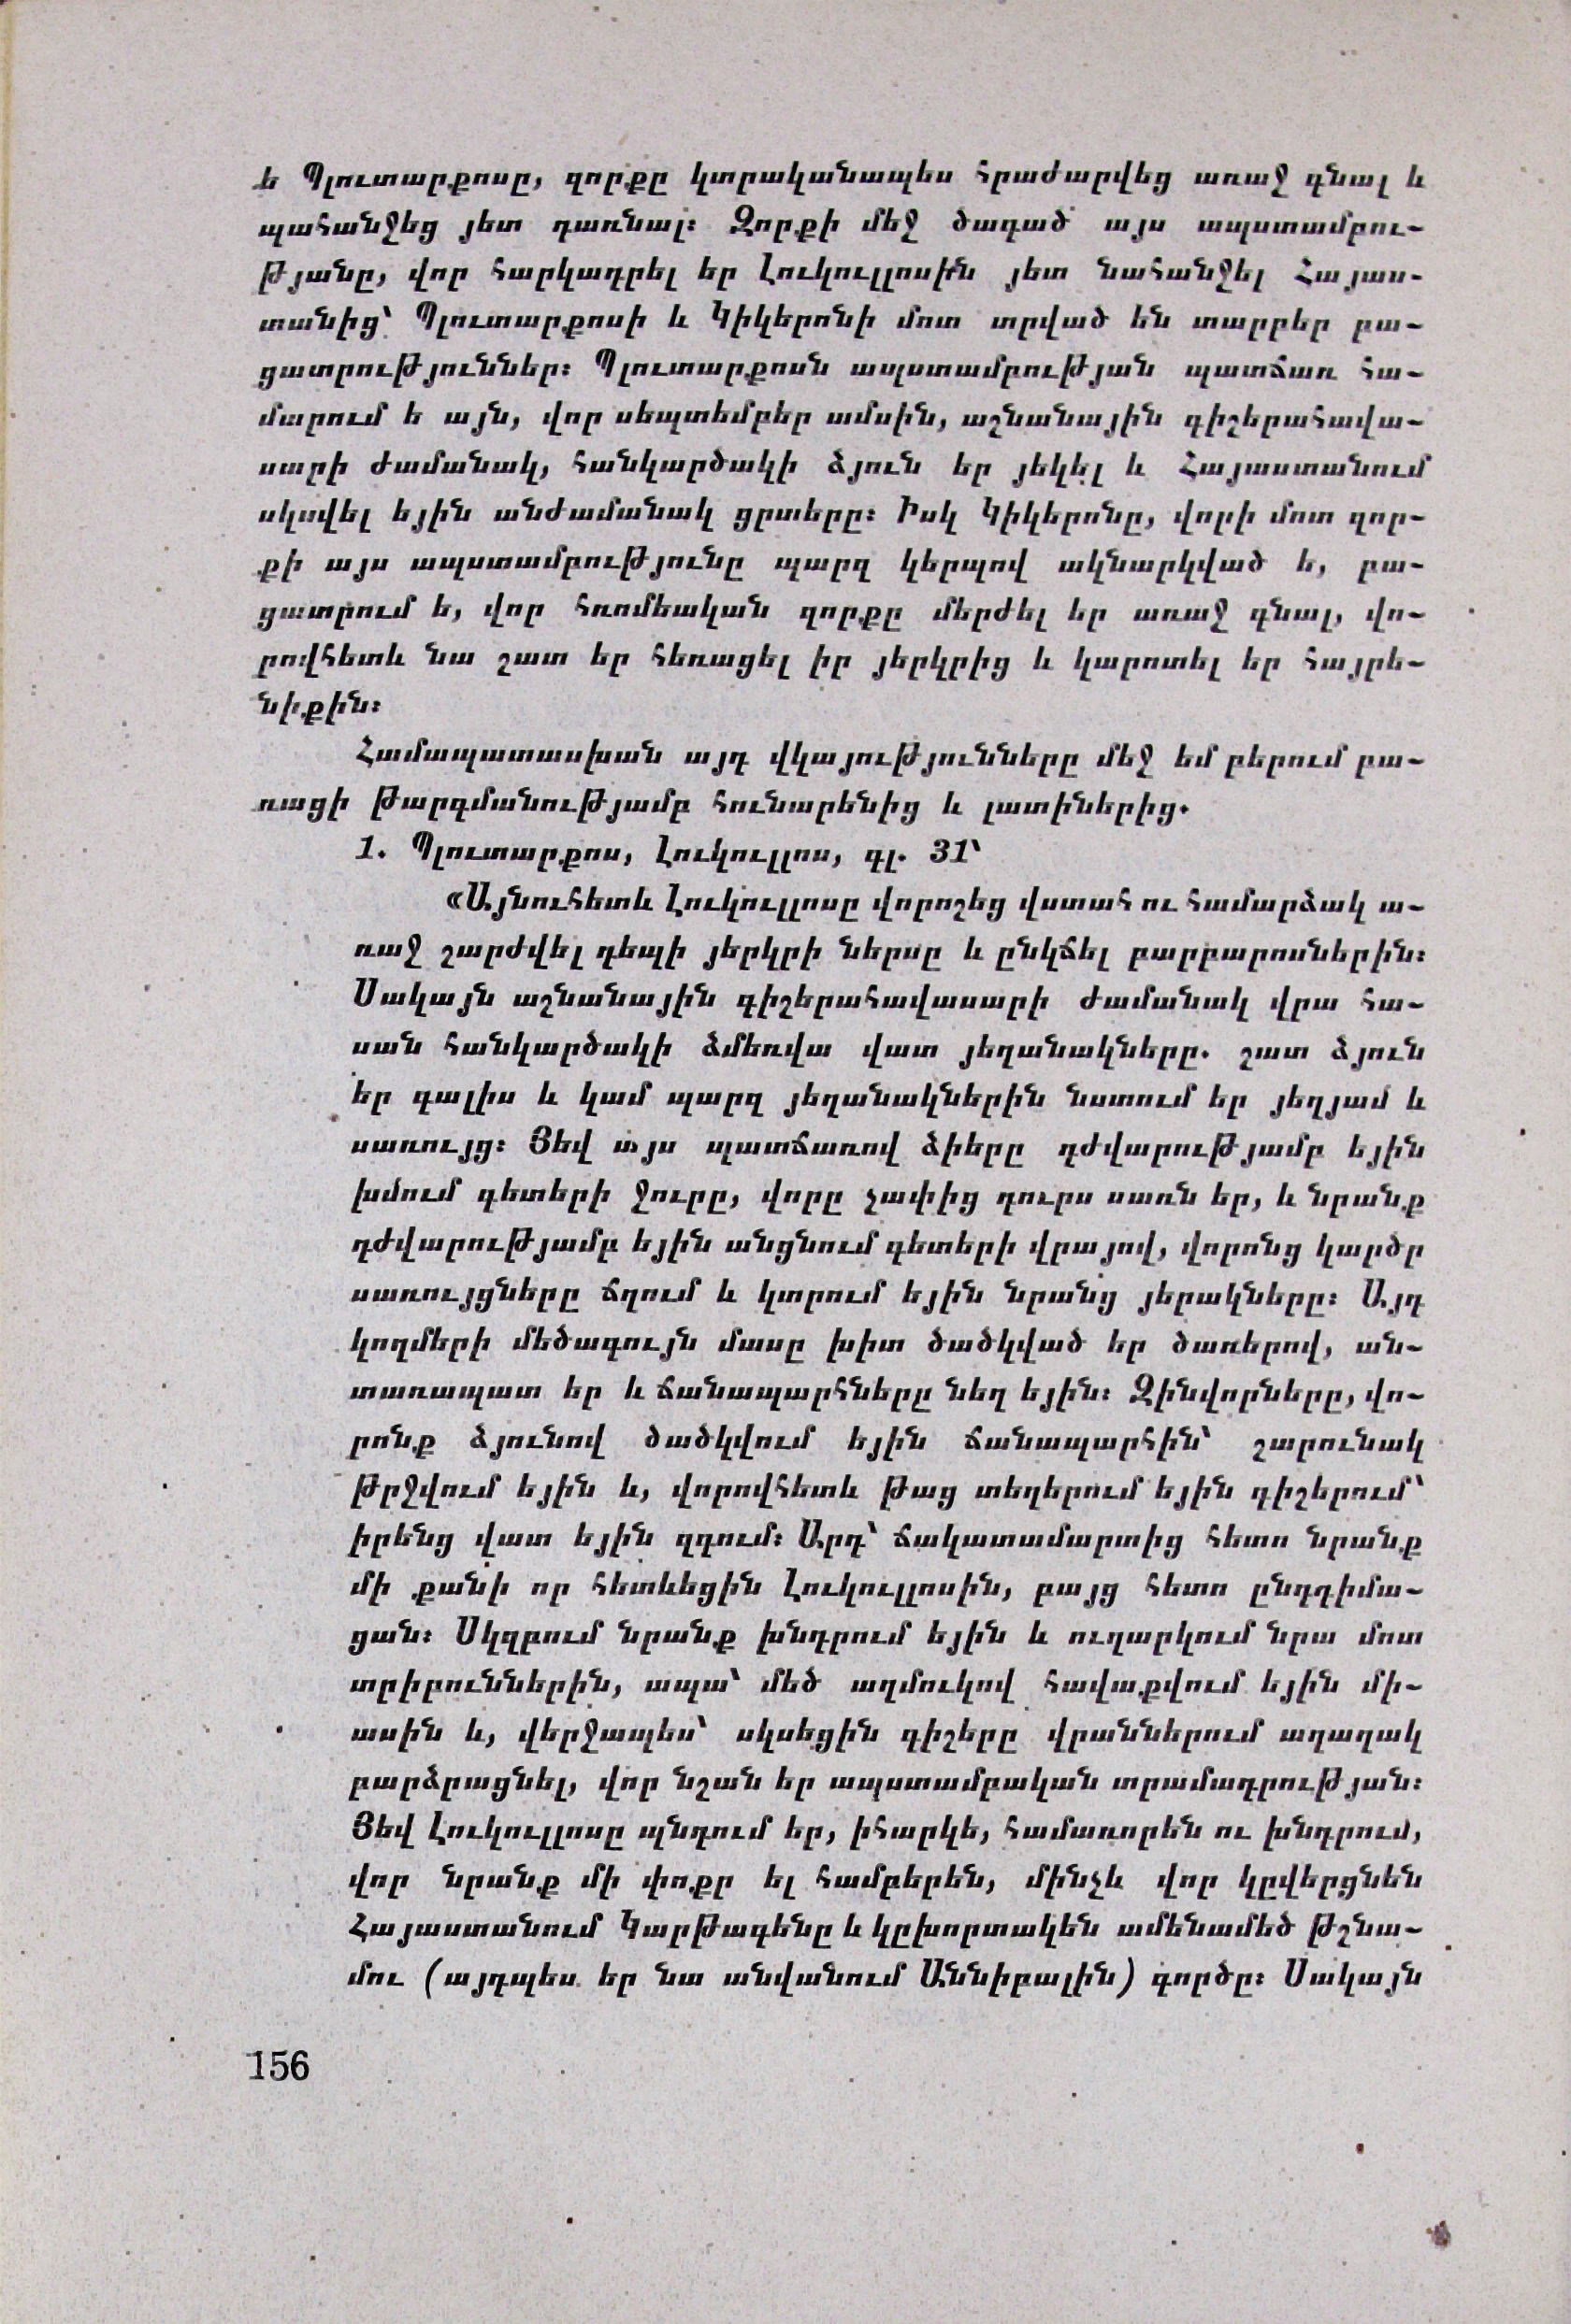 է Պլուտարքոսը, զորքը կտրականապես հրաժարվեց առաջ գնալ և
պահանջեց յետ դառնալ։ Զորքի մեջ ծագած այս ապստամբու-
թյանը, վոր հարկադրել եր Լուկուլլոսին յետ նահանջել Հայաս-
տանից՝ Պլուտարքոսի և Կիկերոնի մոտ տրված են տարբեր բա-
ցատրություններ։ Պլուտարքոսն ապստամբության պատճառ հա-
մարում ե այն, վոր սեպտեմբեր ամսին, աշնանային գիշերահավա-
սարի ժամանակ, հանկարծակի ձյուն եր յեկել և Հայաստանում
սկսվել եյին անժամանակ ցրտերը։ Իսկ Կիկերոնը, վորի մոտ զոր-
քի այս ապստամբությունը պարզ կերպով ակնարկված ե, բա-
ցատրում ե, վոր հռոմեական զորքը մերժել եր առաջ գնալ, վո-
րովհետև նա շատ եր հեռացել իր յերկրից և կարոտել եր հայրե-
նիքին։
Համապատասխան այդ վկայությունները մեջ եմ բերում բա-
ռացի թարգմանությամբ հունարենից և լատիներից.
1. Պլուտարքոս, Լուկուլլոս, գլ. 31՝
«Այնուհետև Լուկուլլոսը վորոշեց վստահ ու համարձակ ա-
ռաջ շարժվել դեպի յերկրի ներսը և ընկճել բարբարոսներին։
Սակայն աշնանային գիշերահավասարի ժամանակ վրա հա-
սան հանկարծակի ձմեռվա վատ յեղանակները. շատ ձյուն
եր գալիս և կամ պարզ յեղանակներին նստում եր յեղյամ և
սառույց։ Յեվ այս պատճառով ձիերը դժվարությամբ եյին
խմում գետերի ջուրը, վորը չափից դուրս սառն եր, և նրանք
դժվարությամբ եյին անցնում գետերի վրայով, վորոնց կարծր
սառույցները ճղում և կտրում եյին նրանց յերակները։ Այդ
կողմերի մեծագույն մասը խիտ ծածկված եր ծառերով, ան-
տառապատ եր և ճանապարհները նեղ եյին։ Զինվորները, վո-
րոնք ձյունով ծածկվում եյին ճանապարհին՝ շարունակ
թրջվում եյին և, վորովհետև թաց տեղերում եյին գիշերում՝
իրենց վատ եյին զգում։ Արդ՝ ճակատամարտից հետո նրանք
մի քանի որ հետևեցին Լուկուլլոսին, բայց հետո ընդդիմա-
ցան։ Սկզբում նրանք խնդրում եյին և ուղարկում նրա մոտ
տրիբուններին, ապա՝ մեծ աղմուկով հավաքվում եյին մի-
ասին և, վերջապես՝ սկսեցին գիշերը վրաններում աղաղակ
բարձրացնել, վոր նշան եր ապստամբական տրամադրության։
Յեվ Լուկուլլոսը պնդում եր, իհարկե, համառորեն ու խնդրում,
վոր նրանք մի փոքր ել համբերեն, մինչև վոր կըվերցնեն
Հայաստանում Կարթագենը և կըխորտակեն ամենամեծ թշնա-
մու (այդպես եր նա անվանում Աննիբալին) գործը։ Սակայն
156